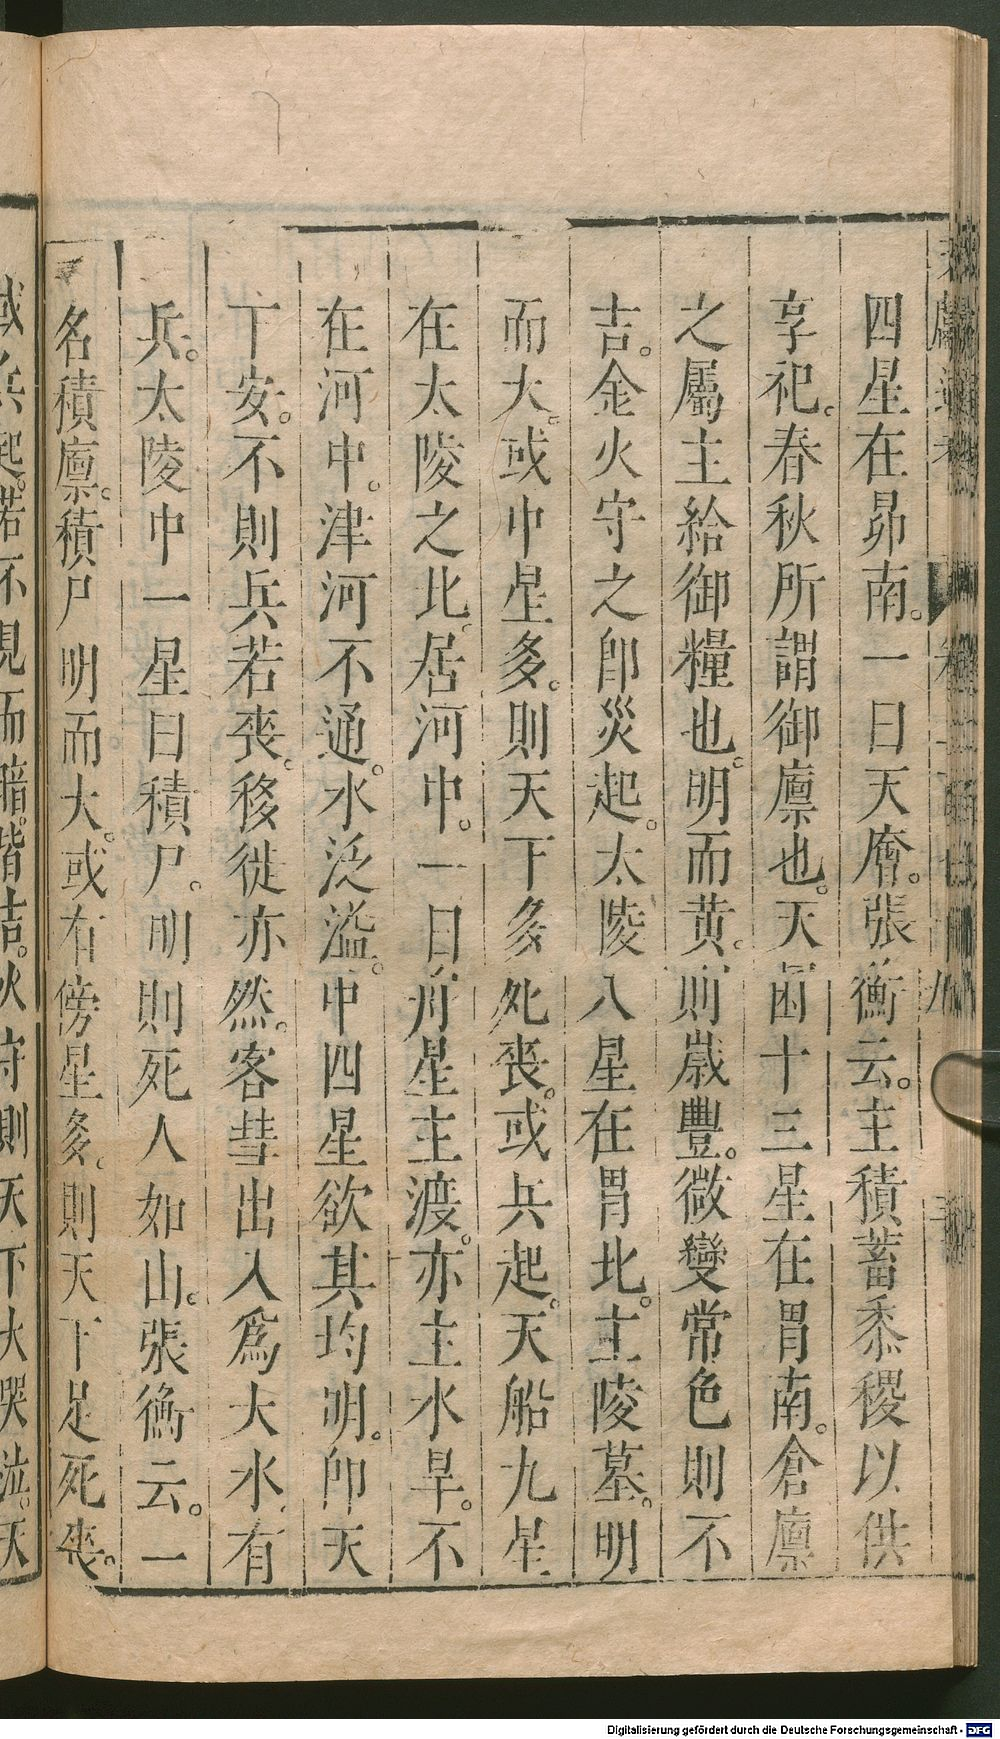 四星在昴南。一曰天廥。張衡云。主積蓄黍稷以供
享祀。春秋所謂御廩也。天囷十三星在胃南。倉廩
之屬主給御糧也。明而黃。則歲豐。微變常色則不
吉。金火守之卽災起。太陵八星在胃北。主陵墓。明
而大。或中星多。則天下多死喪。或兵起。天船九星
在太陵之北。居河中。一曰舟星主渡。亦主水旱。不
在河中。津河不通。水泛溢。中四星欲其均明。卽天
下安。不則兵若喪。移徙亦然。客彗出入爲大水有
兵。太陵中一星曰積尸。明則死人如山。張衡云。一
名積廩。積尸明而大。或有傍星多。則天下足死喪。
或兵起。若不見而暗。皆吉。火守則天下大哭泣。天
Digitalisierung gefördert durch die Deutsche Forschungsgemeinschaft - DFG